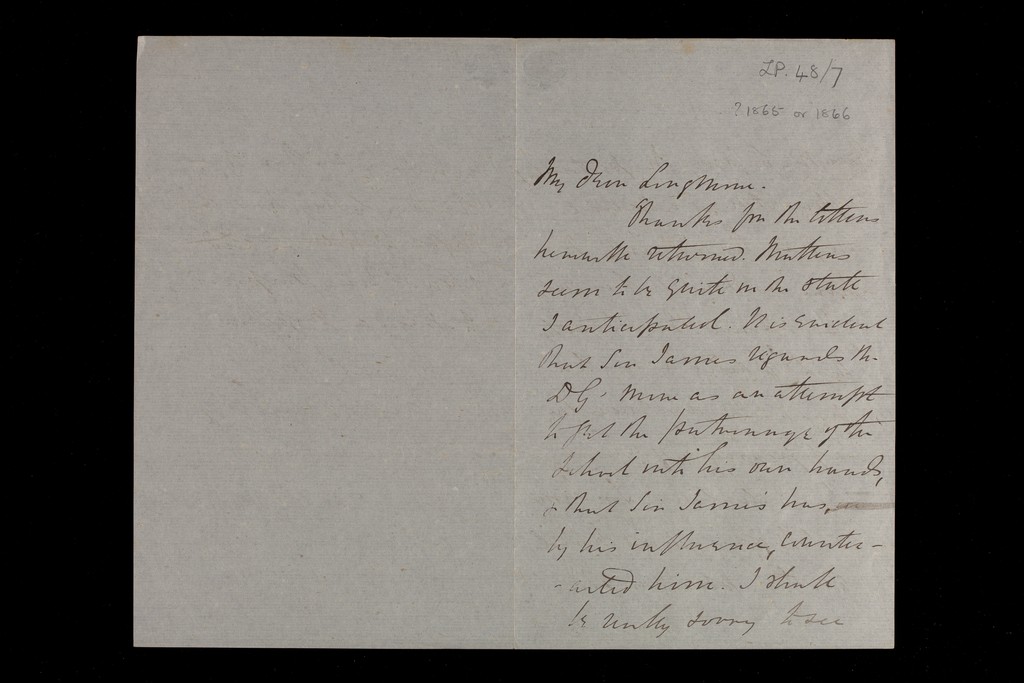 LP. 48/7
? 1865 or 1866
My dear Longmore.
Thanks for the letters
herewith returned. Matters
seem to be quite in the state
I anticipated. It is evident
that Sir James regards the
DG's move as an attempt
to get the patronage of the
School into his own hands,
& that Sir James has,
by his influence, counter-
-acted him. I shall
be really sorry to see